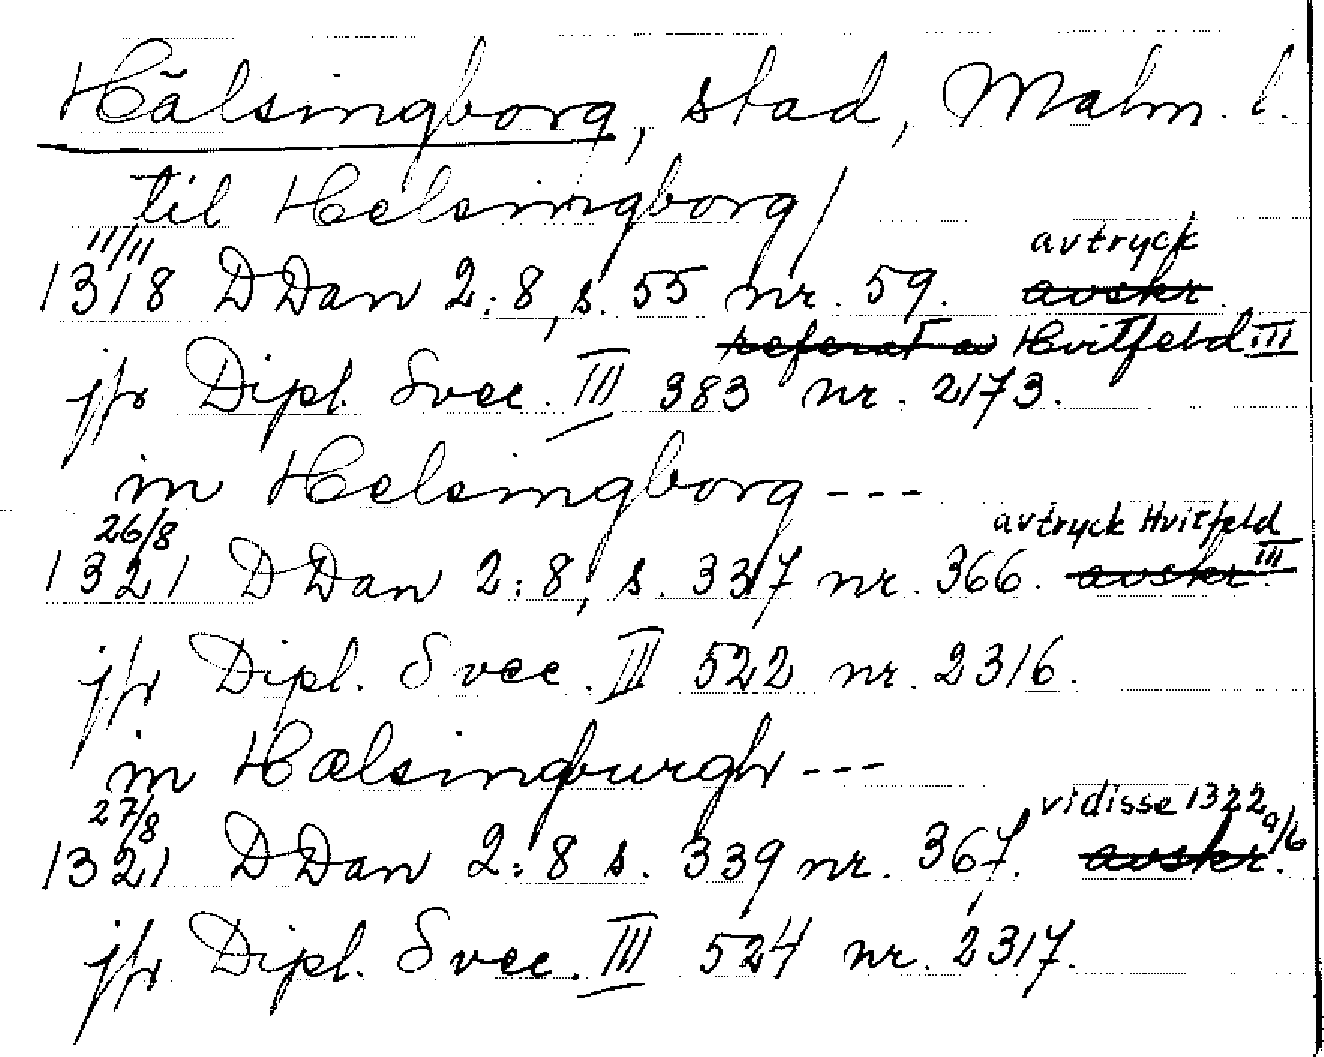 Hälsingborg, stad, Malm. l.
til Helsingborg/
11/11 avtryck
1318 DDan 2:8, s. 55 nr. 59. avskr.
referat av Hvitfeld III
jfr Dipl. Svec. III 383 nr. 2173.
in Helsingborg ---
26/8 avtryck Hvitfeld III
1321 DDan 2:8, s. 337 nr. 366. avskr.
jfr Dipl. Svec. III 522 nr. 2316.
in Hælsingburgh ---
27/8 vidisse 1322 9/6
1321 DDan 2:8 s. 339 nr. 367. avskr.
jfr Dipl. Svec. III 524 nr. 2317.